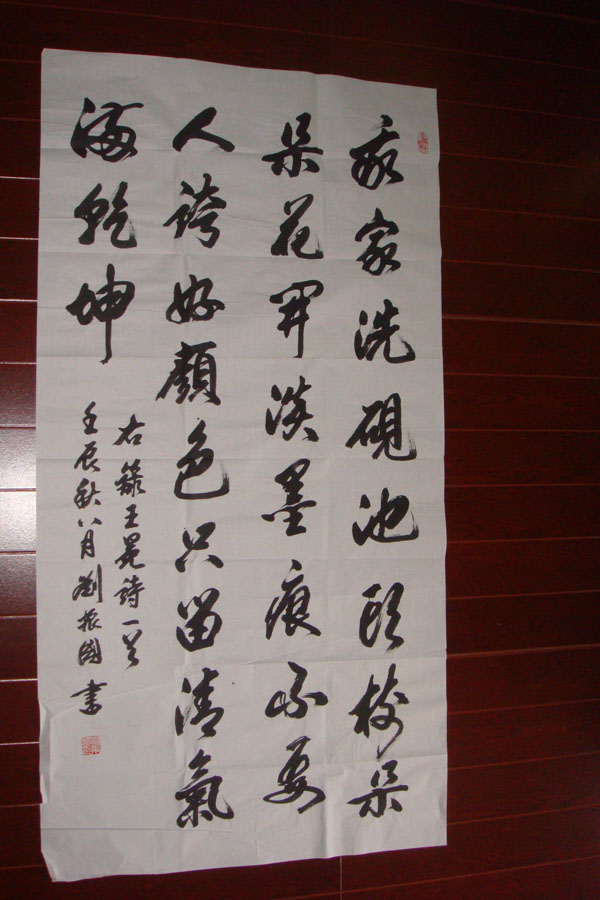 我家洗硯池頭樹朵
朵花開淡墨痕不要
人誇好顏色只留清氣
滿乾坤
右錄王冕詩一首
壬辰秋八月劉振國書